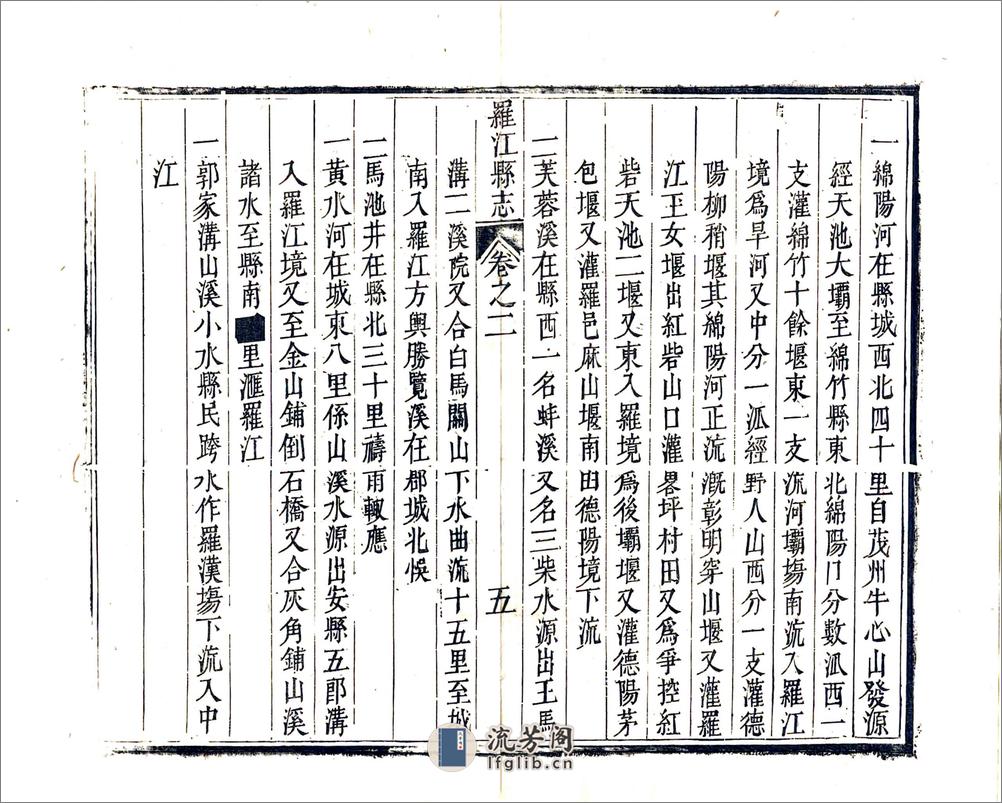 一綿陽河在縣城西北四十里自茂州牛心山發源
經天池大壩至綿竹縣東北綿陽門分數派西一
支灌綿竹十餘堰東一支流河壩塲南流入羅江
境爲旱河又中分一派經野人山西分一支灌德
陽柳稍堰其綿陽河正流溉彰明穿山堰又灌羅
江王女堰出紅砦山口灌畧坪村田又爲爭控紅
砦天池二堰又東入羅境爲後壩堰又灌德陽茅
包堰又灌羅邑麻山堰南田德陽境下流
一芙蓉溪在縣西一名蚌溪又名三柴水源出王馬
羅江縣志
卷之二
五
溝二溪院又合白馬關山下水曲流十五里至城
南入羅江方輿勝覽溪在郡城北悞
一馬池井在縣北三十里禱雨輙應
一黃水河在城東八里係山溪水源出安縣五郎溝
入羅江境又至金山鋪倒石橋又合灰角鋪山溪
諸水至縣南里滙羅江
一郭家溝山溪小水縣民跨水作羅漢塲下流入中
江
流芳阁
lfglib.cn